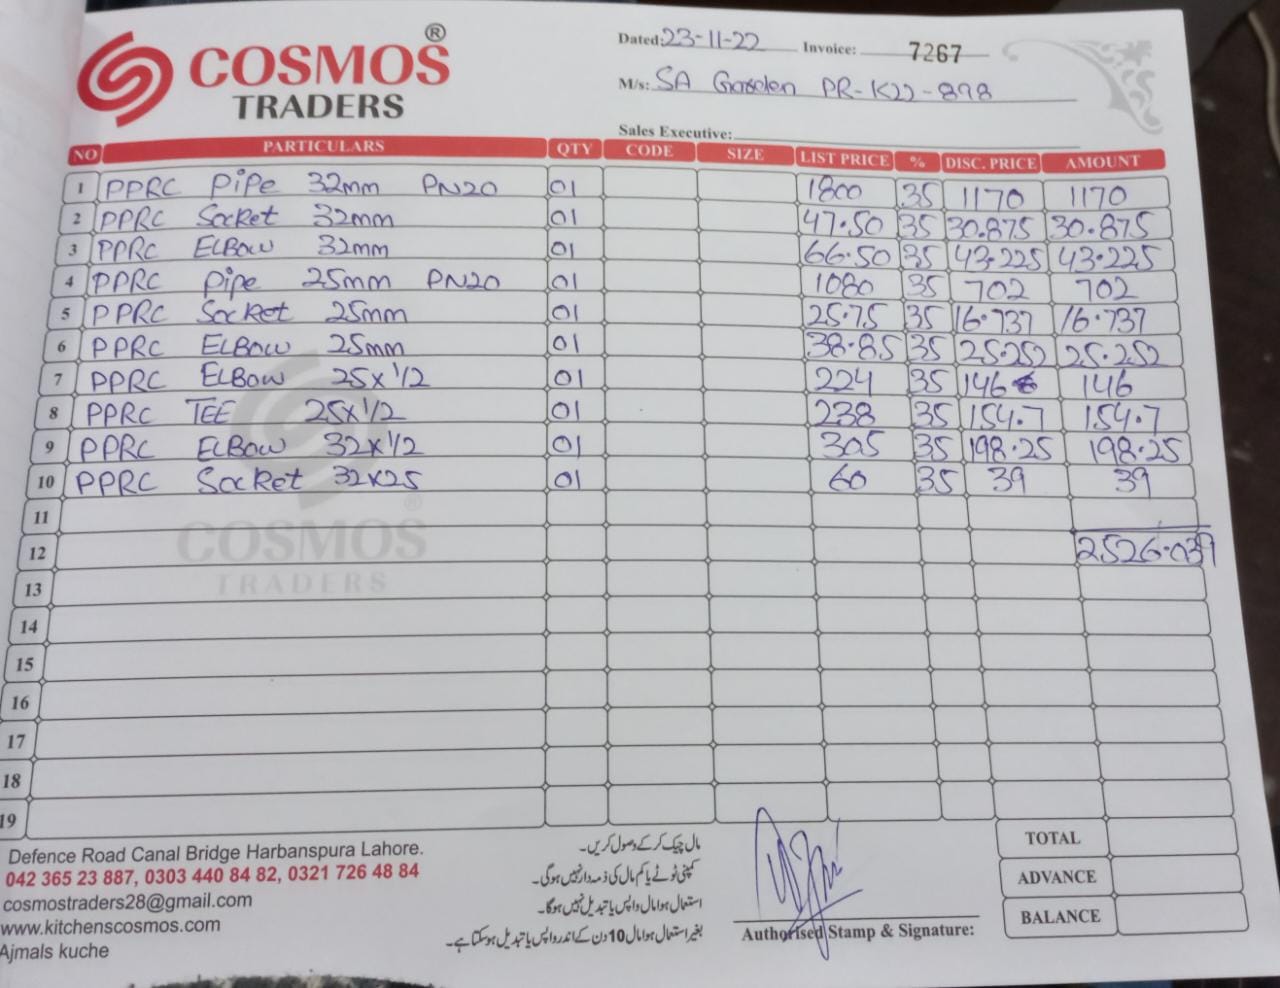 COSMOS ®
TRADERS
Dated: 23-11-22 Invoice: 7267
M/s: SA Garden PR-K22-898
Sales Executive:
NO PARTICULARS QTY CODE SIZE LIST PRICE % DISC. PRICE AMOUNT
1 PPRC Pipe 32mm PN20 01 1800 35 1170 1170
2 PPRC Socket 32mm 01 47.50 35 30.875 30.875
3 PPRC ELBow 32mm 01 66.50 35 43.225 43.225
4 PPRC Pipe 25mm PN20 01 1080 35 702 702
5 PPRC Socket 25mm 01 25.75 35 16.737 16.737
6 PPRC ELBow 25mm 01 38.85 35 25.252 25.252
7 PPRC ELBow 25x1/2 01 224 35 146 146
8 PPRC TEE 25x1/2 01 238 35 154.7 154.7
9 PPRC ELBow 32x1/2 01 305 35 198.25 198.25
10 PPRC Socket 32x25 01 60 35 39 39
11
12 2526.039
13
14
15
16
17
18
19
COSMOS ®
TRADERS
Defence Road Canal Bridge Harbanspura Lahore.
042 365 23 887, 0303 440 84 82, 0321 726 48 84
cosmostraders28@gmail.com
www.kitchenscosmos.com
Ajmals kuche
مال چیک کر کے وصول کریں۔
کمپنی ٹوٹے یا کم مال کی ذمہ دار نہیں ہوگی۔
استعمال ہوا مال واپس یا تبدیل نہیں ہوگا۔
بغیر استعمال ہوا مال 10 دن کے اندر واپس یا تبدیل ہو سکتا ہے۔
Authorised Stamp & Signature:
TOTAL
ADVANCE
BALANCE